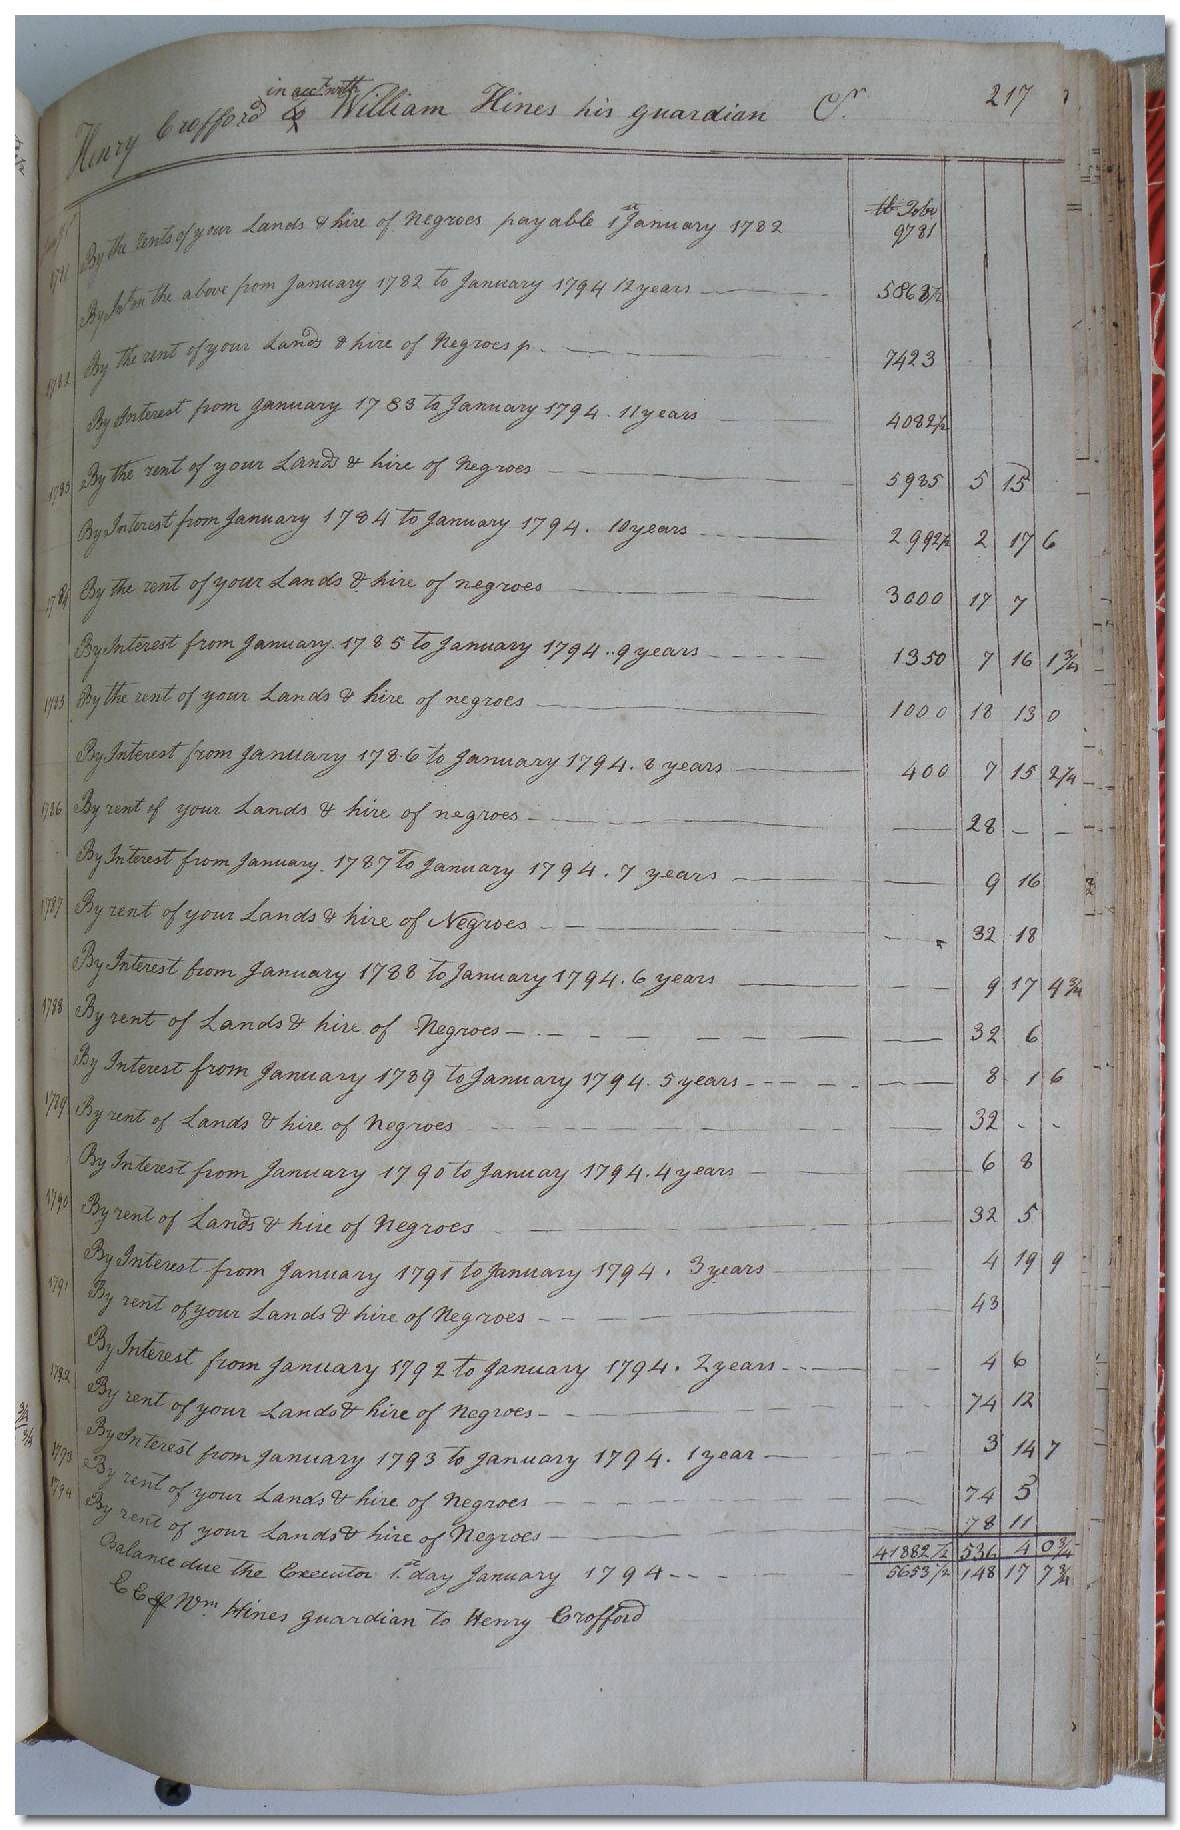 in acct. with
Henry Crofford to William Hines his guardian Cr. 217
lb Tobo
1781 By the rents of your Lands & hire of Negroes payable 1st January 1782 9781
By Int on the above from January 1782 to January 1794 12 years 5868 1/2
1782 By the rent of your Lands & hire of Negroes p. 7423
By Interest from January 1783 to January 1794. 11 years 4082 1/2
1783 By the rent of your Lands & hire of Negroes 5985 5 15
By Interest from January 1784 to January 1794. 10 years 2992 1/2 2 17 6
1784 By the rent of your Lands & hire of negroes 3000 17 7
By Interest from January 1785 to January 1794. 9 years 1350 7 16 1 3/4
1785 By the rent of your Lands & hire of negroes 1000 18 13 0
By Interest from January 1786 to January 1794. 8 years 400 7 15 2 1/4
1786 By rent of your Lands & hire of negroes 28 - -
By Interest from January 1787 to January 1794. 7 years 9 16
1787 By rent of your Lands & hire of Negroes 32 18
By Interest from January 1788 to January 1794. 6 years 9 17 4 3/4
1788 By rent of Lands & hire of Negroes 32 6
By Interest from January 1789 to January 1794. 5 years 8 1 6
1789 By rent of Lands & hire of Negroes 32 - -
By Interest from January 1790 to January 1794. 4 years 6 8
1790 By rent of Lands & hire of Negroes 32 5
By Interest from January 1791 to January 1794. 3 years 4 19 9
1791 By rent of your Lands & hire of Negroes 43
By Interest from January 1792 to January 1794. 2 years 4 6
1792 By rent of your Lands & hire of Negroes 74 12
By Interest from January 1793 to January 1794. 1 year 3 14 7
1793 By rent of your Lands & hire of Negroes 74 5
1794 By rent of your Lands & hire of Negroes 78 11
41882 1/2 536 4 0 3/4
Balance due the Executor 1st day January 1794 5653 1/2 148 17 7 3/4
E E p Wm Hines guardian to Henry Crofford